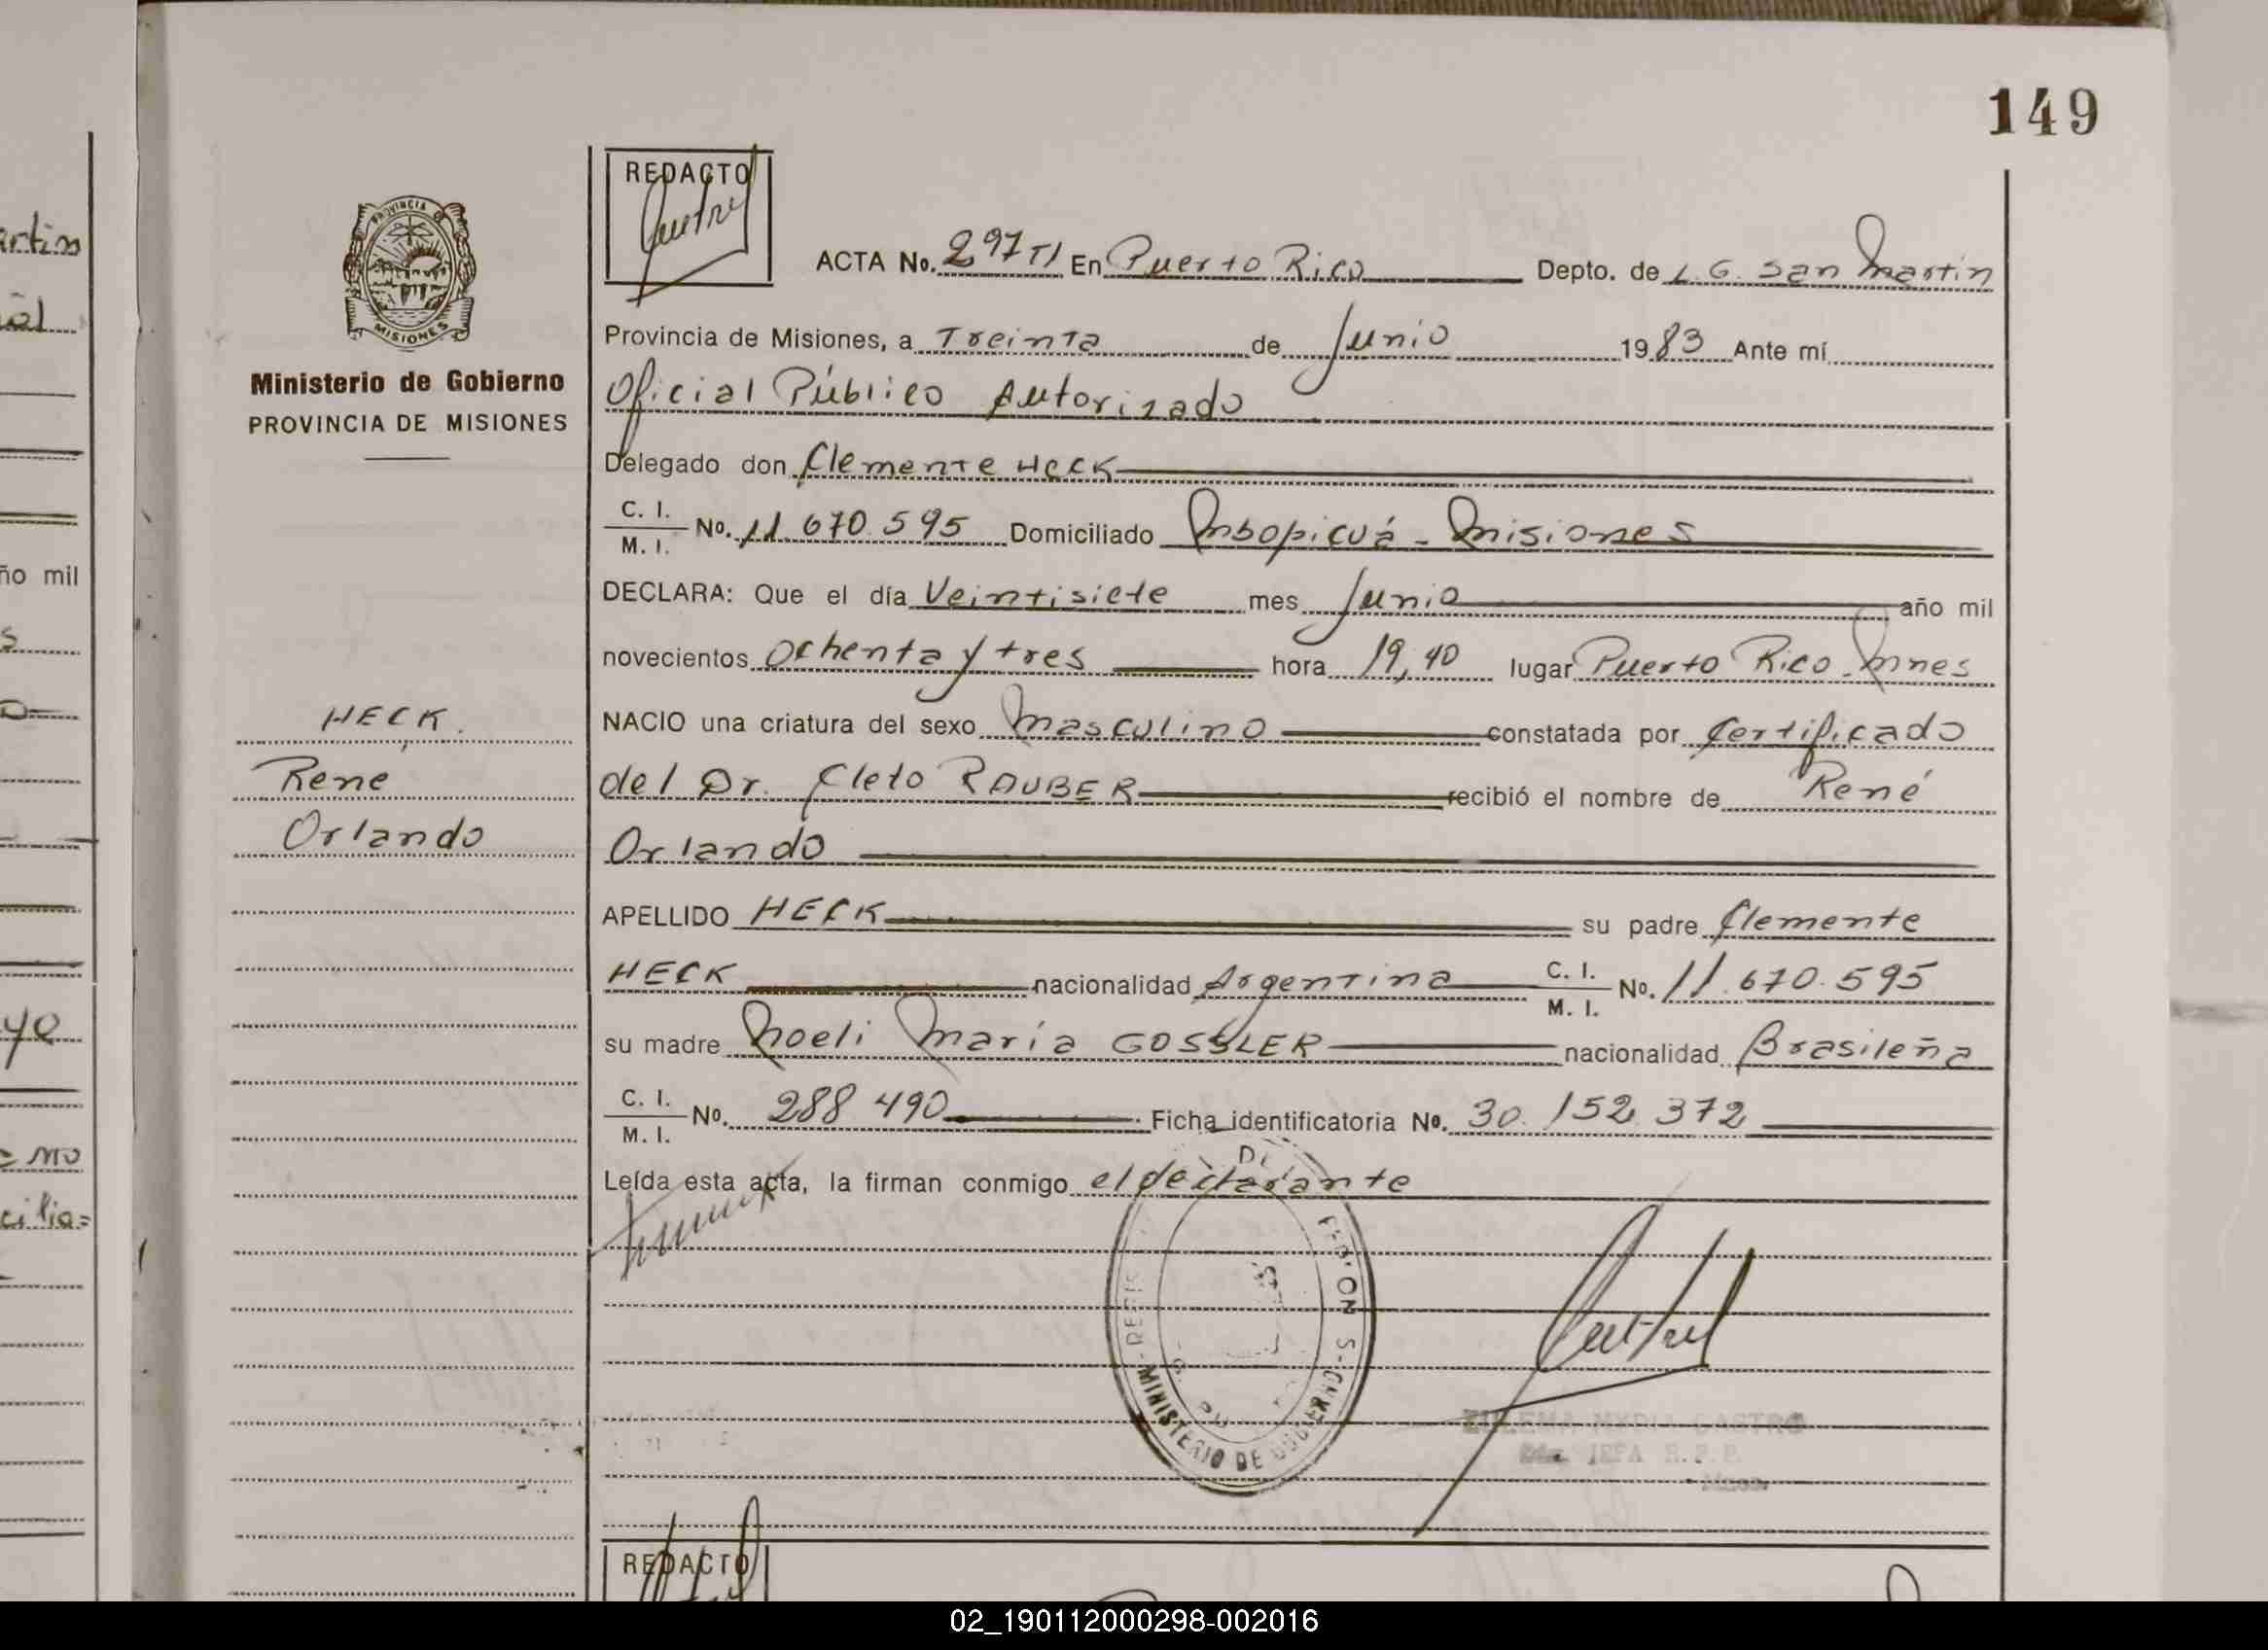 149
artin
REDACTO
PROVINCIA
MISIONES
ACTA No. 297 TI En Puerto Rico Depto. de L. G. San Martín
Provincia de Misiones, a Treinta de Junio 1983 Ante mí
Ministerio de Gobierno
PROVINCIA DE MISIONES
Oficial Público Autorizado
Delegado don Clemente HECK
C. I.
M. I. No. 11.670.595 Domiciliado Mbopicuá - Misiones
ño mil
DECLARA: Que el día Veintisiete mes Junio año mil
novecientos Ochenta y tres hora 19,40 lugar Puerto Rico - Mnes
HECK
NACIO una criatura del sexo Masculino constatada por Certificado
René
del Dr. Cleto RAUBER recibió el nombre de René
Orlando
Orlando
APELLIDO HECK su padre Clemente
HECK nacionalidad Argentina C. I.
M. I. No. 11.670.595
su madre Noeli María GOSSLER nacionalidad Brasileña
C. I.
M. I. No. 288 490 Ficha identificatoria No. 30.152.372
Leída esta acta, la firman conmigo el declarante
MINISTERIO DE GOBIERNO
CASTRO
REDACTO
02_190112000298-002016